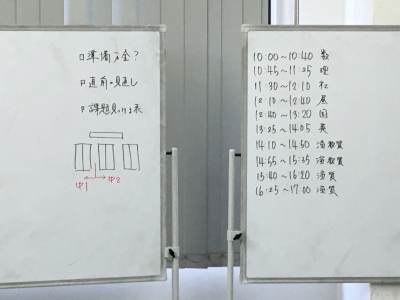 □準備万全？
□直前の見直し
課題見つけま表
中1
中2
10:00～10:40 数
10:45～11:25 理
11:30～12:10 社
12:10～12:40 昼
12:40～13:20 国
13:25～14:05 英
14:10～14:50 演教質
14:55～15:35 演教質
15:40～16:20 演質
16:25～17:00 演質